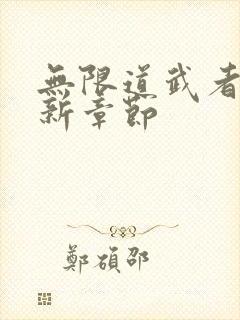 無限道武者
新章節
鄭碩邵